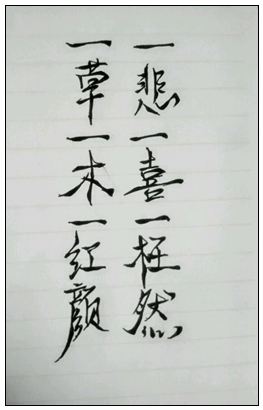 一悲一喜一枉然
一草一木一红颜